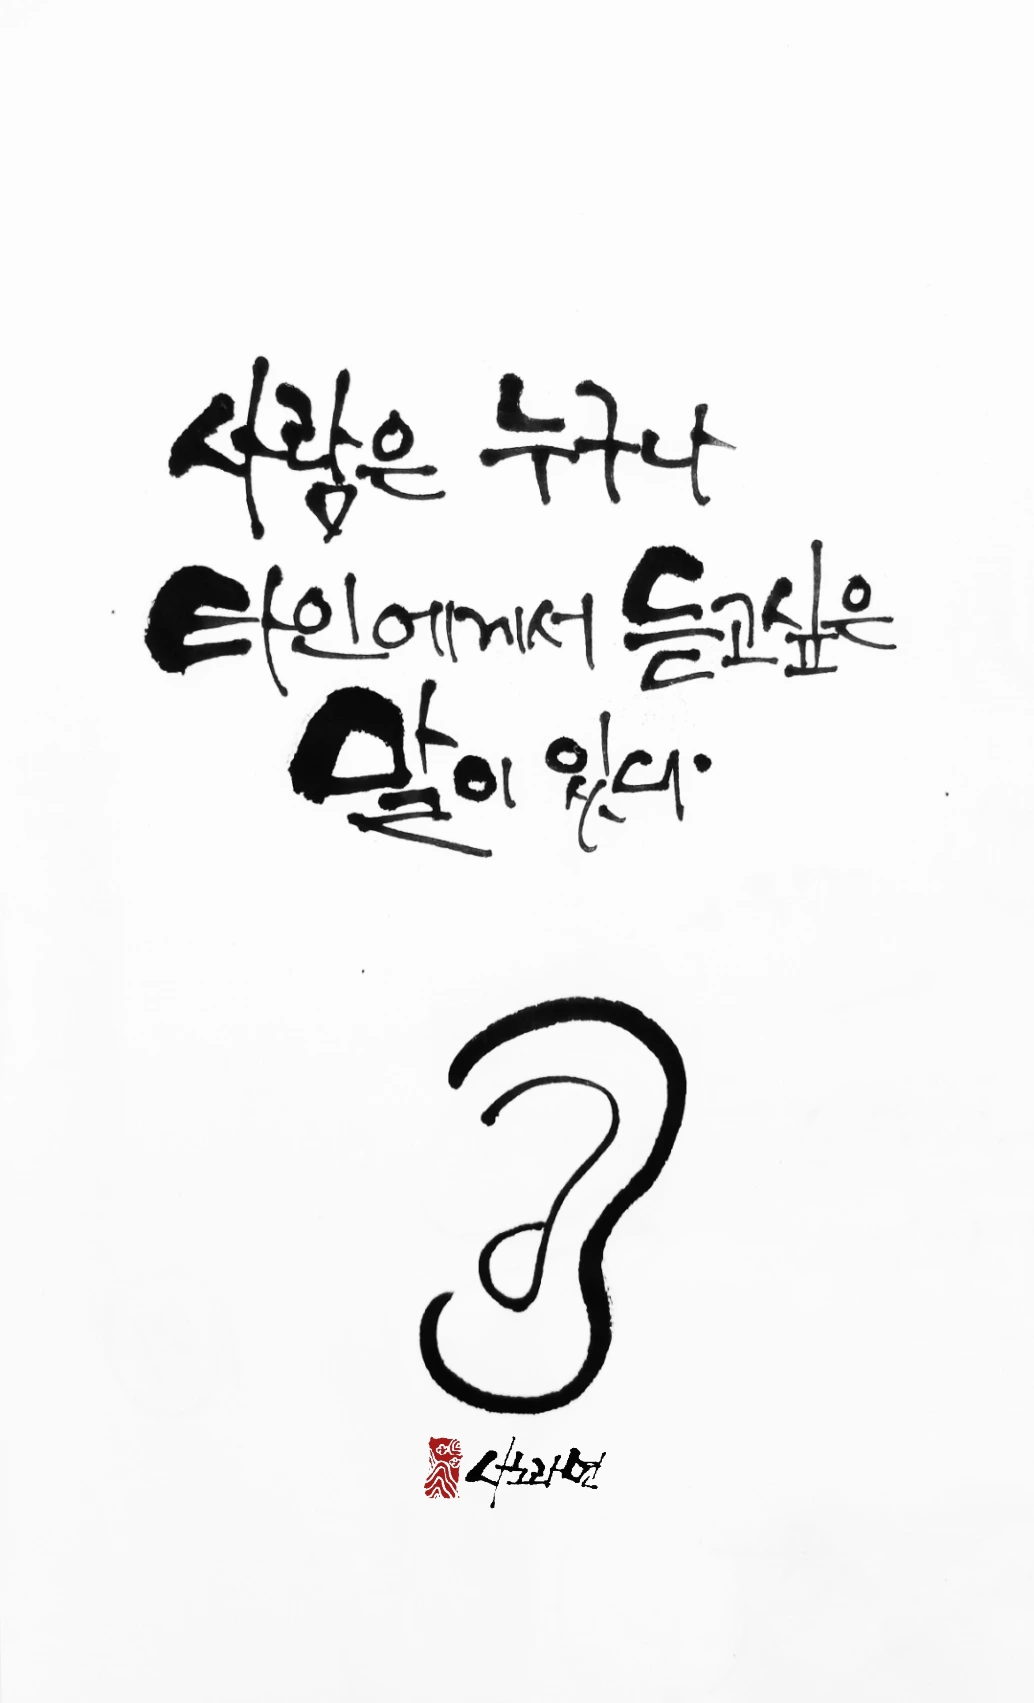 사람은 누구나
타인에게서 듣고싶은
말이 있다.